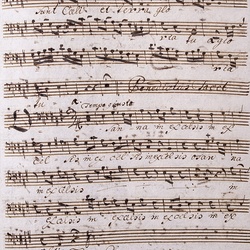 sunt Cæli et Terra glo
ria tua glo
Benedictus tacet
Tempo giusto
san na in excelsis in ex
cel sis in ex cel sis in excelsis osan na
in excelsis in ex
celsis in excelsis in excelsis in ex